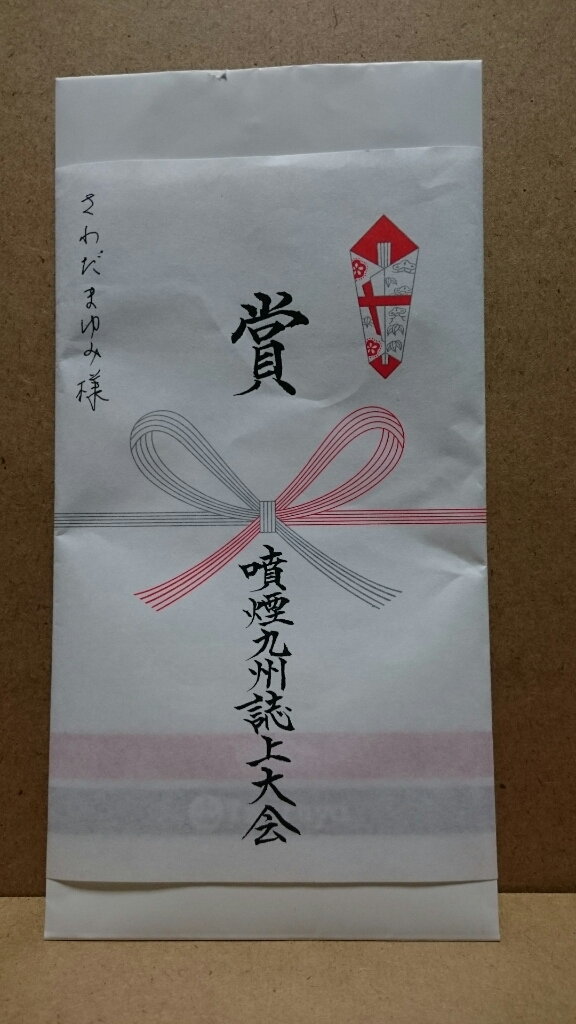 賞
噴煙九州誌上大会
さわだまゆみ様